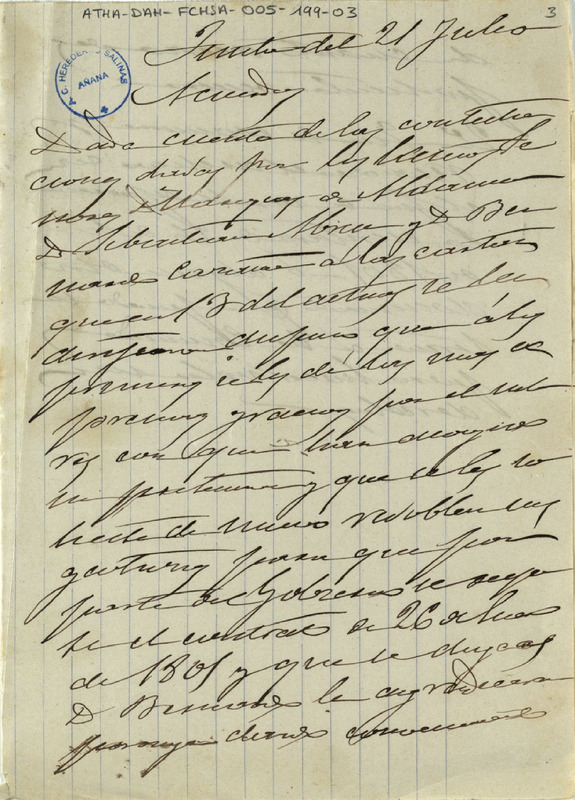 ATHA-DAH-FCHSA-005-199-03
3
A. C. HEREDEROS SALINAS
AÑANA
Junta del 21 Julio
Acuerdos
Dada cuenta de las contesta
ciones dadas por los Señores
Marques de
D. Sebastian Abreu y D. Ber
nardo á las cartas
que en 13 del actual se les
dispuso que á los
primeros se les dé las mas ex
presivas gracias por el inte
res con que han acogido
su pretension y que se les so
licite de nuevo redoblen sus
gestiones para que por
parte del Gobierno se respe
te el contrato de 26 de
de 1801 y que se diga á
D. Bernardo le agradecera
conveniente